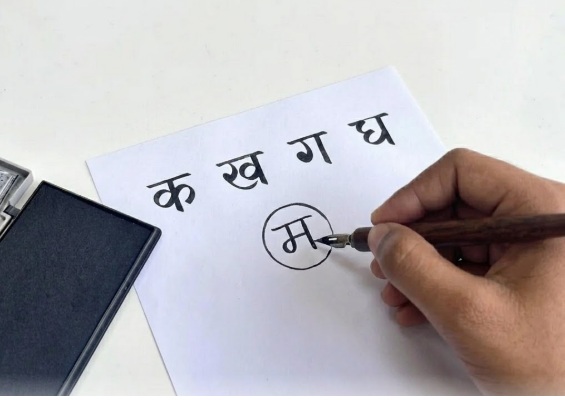 क ख ग घ
म